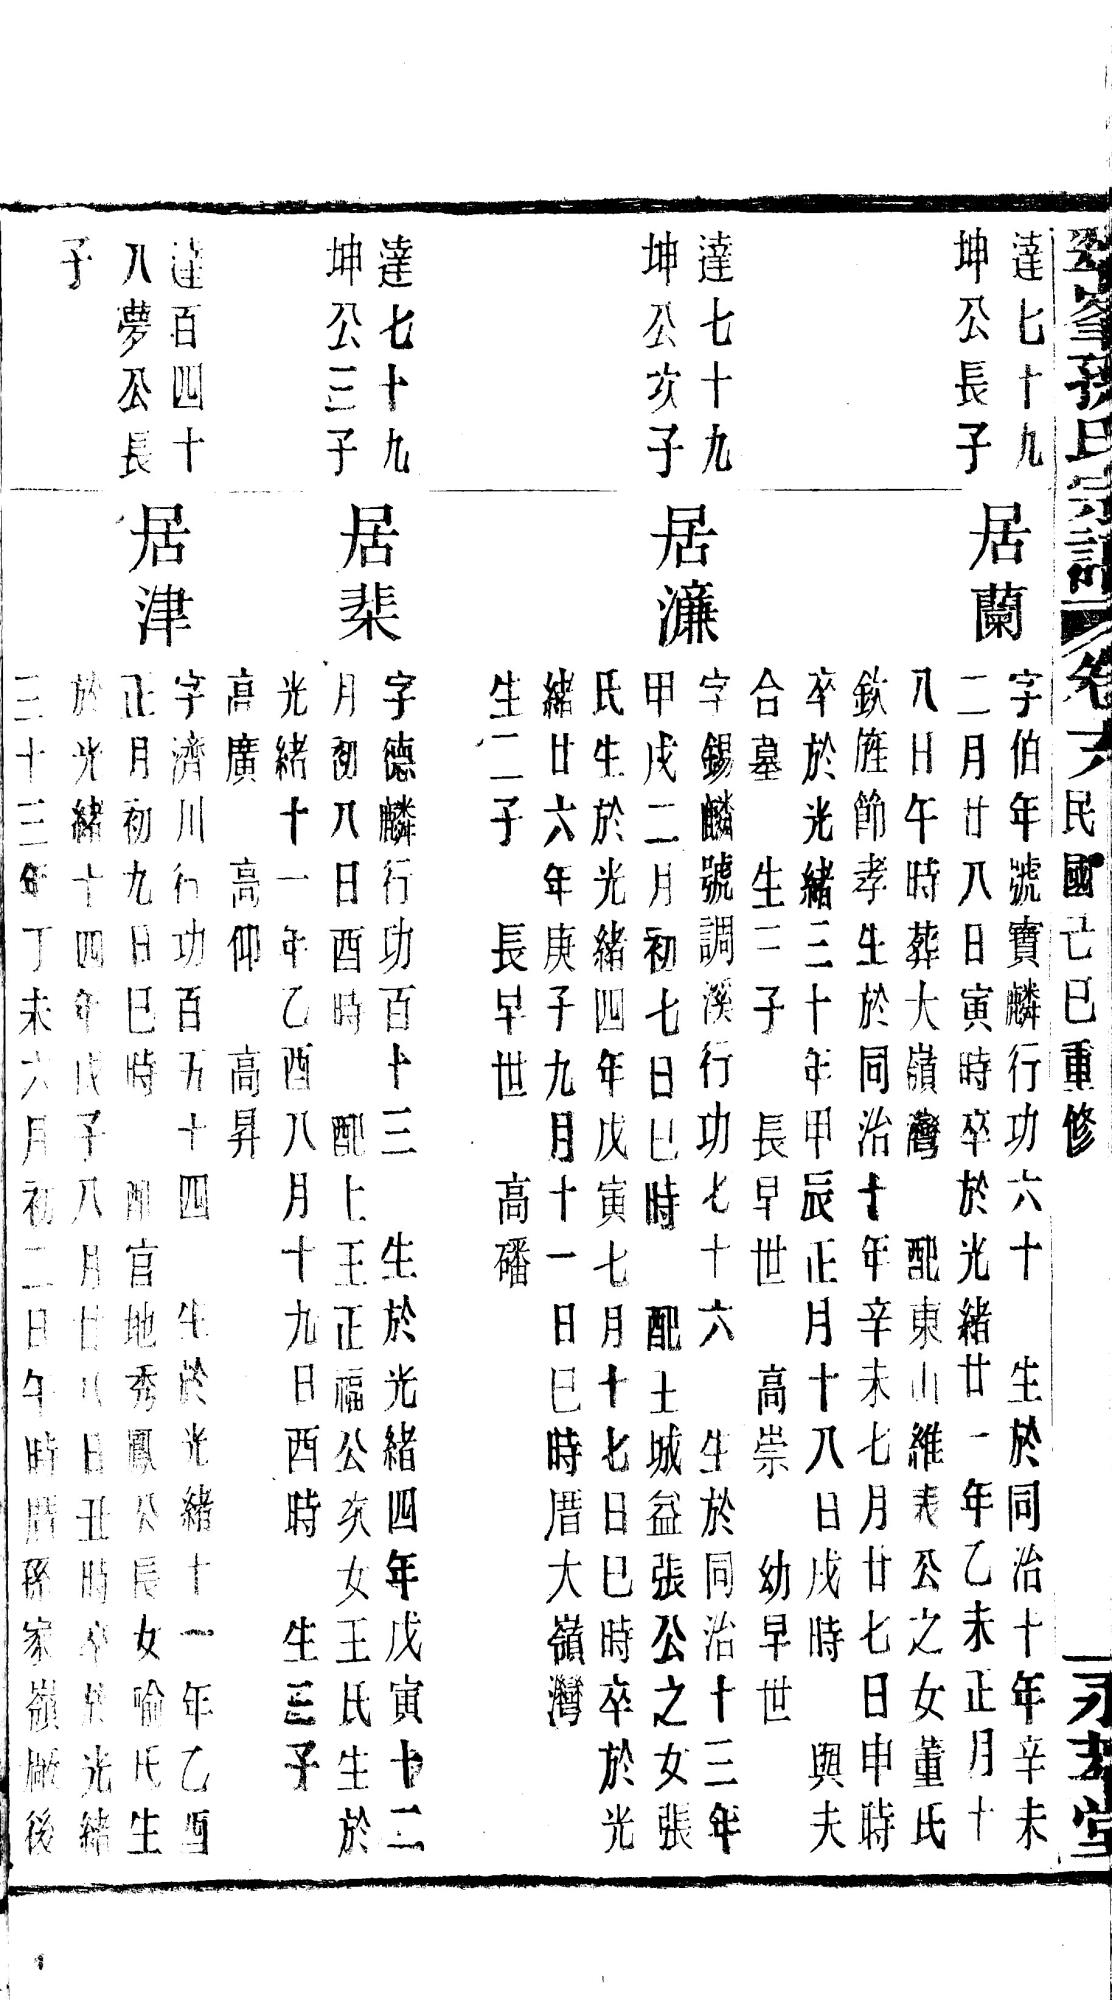 峯孫氏宗譜 卷六 民國己巳重修 永堂
達七十九
坤公長子
居蘭
字伯年號寶麟行功六十 生於同治十年辛未
二月廿八日寅時卒於光緒廿一年乙未正月十
八日午時葬大嶺灣 配東山維表公之女董氏
欽旌節孝生於同治十年辛未七月廿七日申時
卒於光緒三十年甲辰正月十八日戌時 與夫
合墓 生二子 長早世 高崇 幼早世
達七十九
坤公次子
居濂
字錫麟號調溪行功七十六 生於同治十三年
甲戌二月初七日巳時 配土城益張公之女張
氏生於光緒四年戊寅七月十七日巳時卒於光
緒廿六年庚子九月十一日巳時厝大嶺灣
生二子 長早世 高磻
達七十九
坤公三子
居棐
字德麟行功百十三 生於光緒四年戊寅十二
月初八日酉時 配上王正福公次女王氏生於
光緒十一年乙酉八月十九日酉時 生三子
高廣 高仰 高昇
達百四十
八夢公長
子
居津
字濟川行功百五十四 生於光緒十一年乙酉
正月初九日巳時 配官地秀鳳公長女喻氏生
於光緒十四年戊子八月廿八日丑時卒於光緒
三十三年丁未六月初二日午時厝孫家嶺廠後